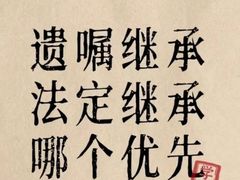 遗嘱继承
法定继承
哪个优先